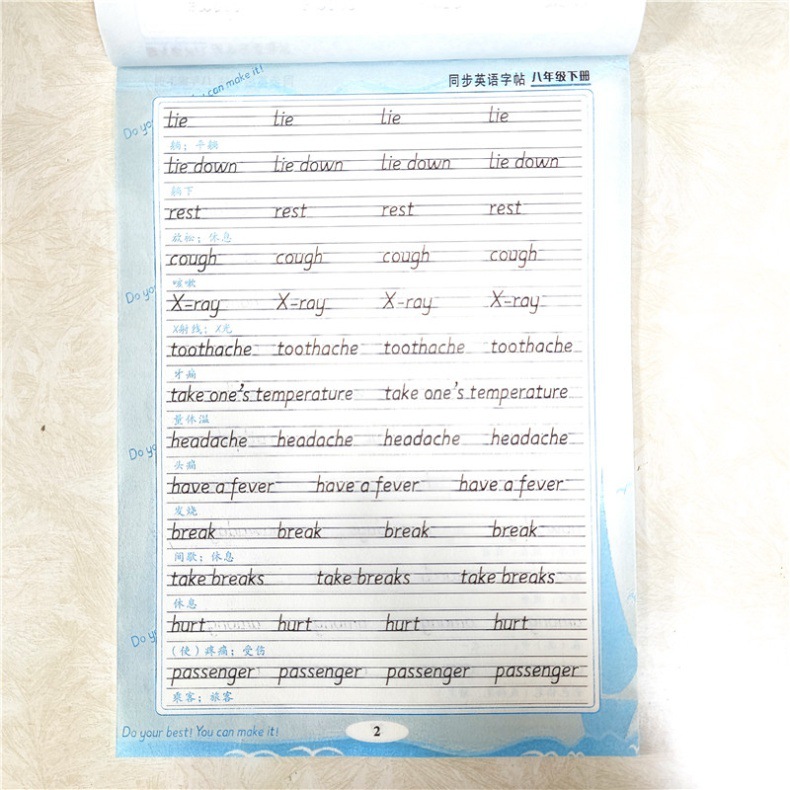 Do your best! You can make it!
同步英语字帖 八年级下册
lie lie lie lie
躺；平躺
lie down lie down lie down lie down
躺下
rest rest rest rest
放松；休息
cough cough cough cough
咳嗽
X-ray X-ray X-ray X-ray
X射线；X光
toothache toothache toothache toothache
牙痛
take one's temperature take one's temperature
量体温
headache headache headache headache
头痛
have a fever have a fever have a fever
发烧
break break break break
间歇；休息
take breaks take breaks take breaks
休息
hurt hurt hurt hurt
（使）疼痛；受伤
passenger passenger passenger passenger
乘客；旅客
Do your best! You can make it!
2